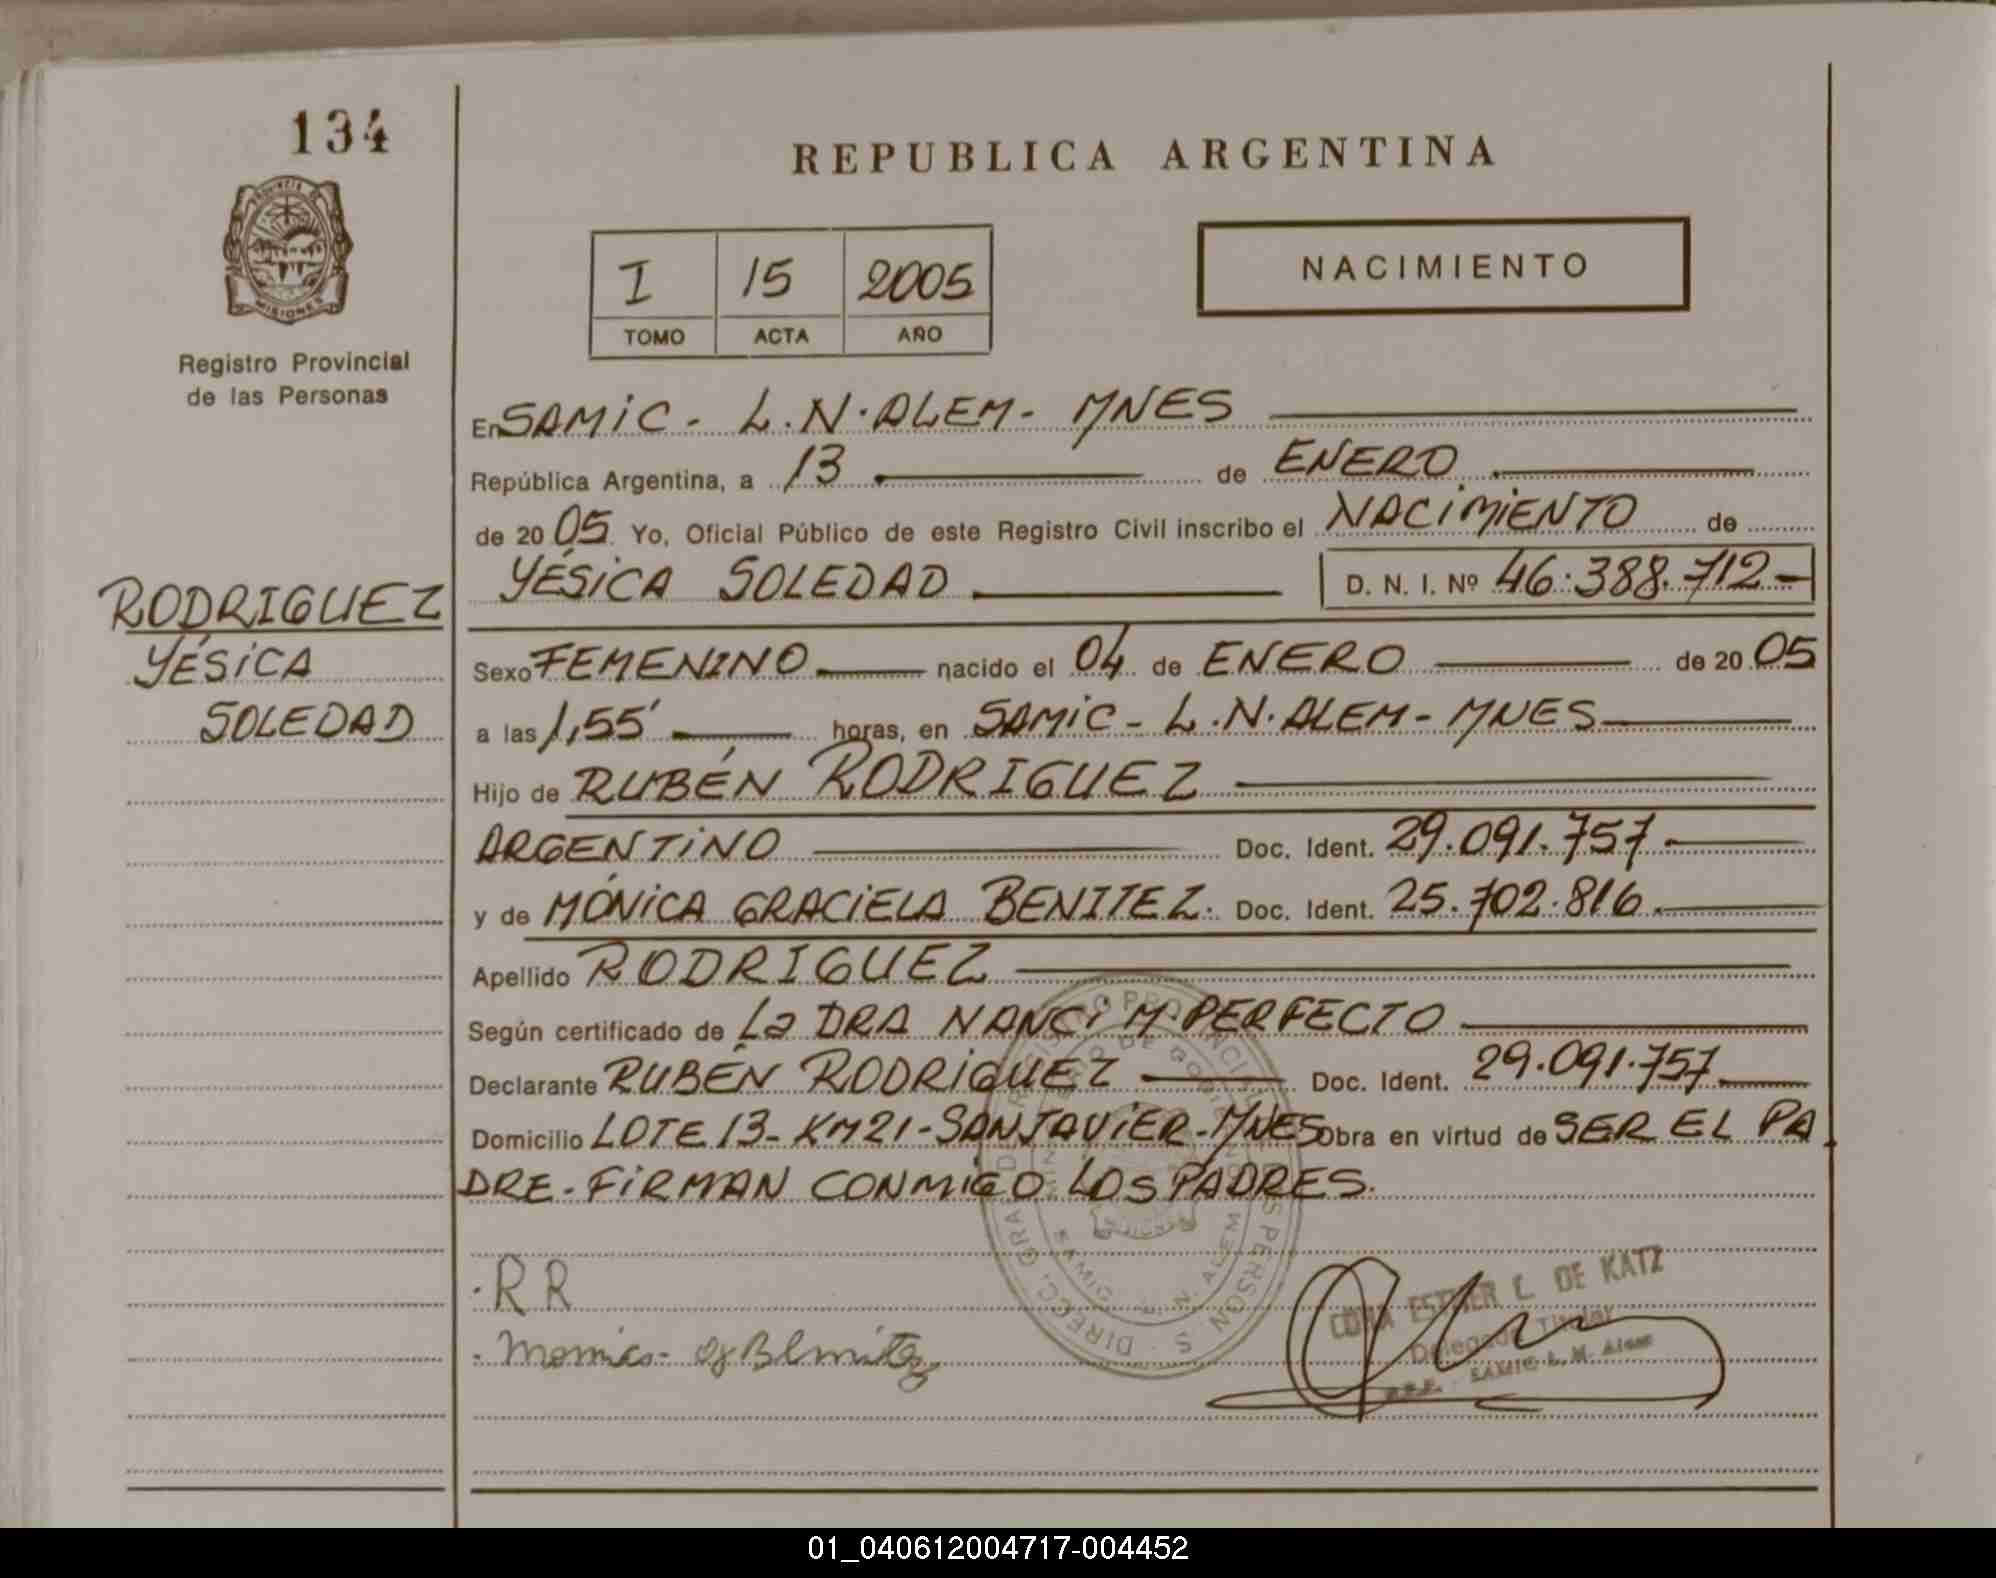 134
REPUBLICA ARGENTINA
PROVINCIA DE
MISIONES
Registro Provincial
de las Personas
I 15 2005
TOMO ACTA AÑO
NACIMIENTO
En SAMIC - L.N. ALEM - MNES
República Argentina, a 13 de ENERO
de 20 05 Yo, Oficial Público de este Registro Civil inscribo el NACIMIENTO de
YÉSICA SOLEDAD D. N. I. Nº 46.388.712-
RODRIGUEZ
YÉSICA
SOLEDAD
Sexo FEMENINO nacido el 04 de ENERO de 20 05
a las 1,55' horas, en SAMIC - L.N. ALEM - MNES
Hijo de RUBÉN RODRIGUEZ
ARGENTINO Doc. Ident. 29.091.757
y de MÓNICA GRACIELA BENITEZ. Doc. Ident. 25.702.816
Apellido RODRIGUEZ
Según certificado de La DRA NANCI M. PERFECTO
Declarante RUBÉN RODRIGUEZ Doc. Ident. 29.091.757
Domicilio LOTE 13 - KM 21 - SAN JAVIER - MNES Obra en virtud de SER EL PA
DRE - FIRMAN CONMIGO LOS PADRES.
. R R
. Monica G Benitez
ESTHER L. DE KATZ
Delegada Titular
SAMIC L. N. Alem
01_040612004717-004452